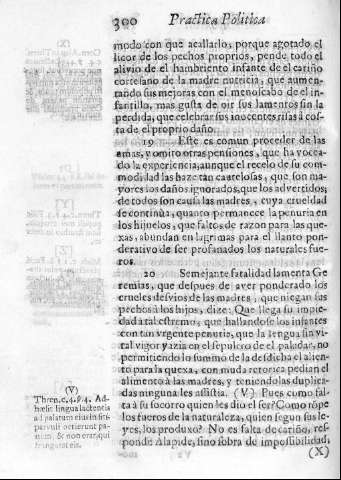 300 Practica Politica
modo con que acallarlo, porque agotado el
licor de los pechos proprios, pende todo el
alivio de el hambriento infante de el cariño
cortesano de la madre nutricia, que aumen-
tando sus mejoras con el menoscabo de el in-
fantillo, mas gusta de oir sus lamentos sin la
perdida, que celebrar sus inocentes risas à cos-
ta de el proprio daño.
19 Este es comun proceder de las
amas, y omito otras pensiones, que ha vocea-
do la experiencia, aunque el recelo de su como-
modidad las haze tan cautelosas, que son ma-
yores los daños ignorados, que los advertidos;
de todos son causa las madres, cuya crueldad
se continùa, quanto permanece la penuria en
los hijuelos, que faltos de razon para las que-
xas, abundan en lagrimas para el llanto pon-
derativo de ser profanados los naturales fue-
ros.
20 Semejante fatalidad lamenta Ge
remias, que despues de aver ponderado los
crueles desvios de las madres, que niegan sus
pechos à los hijos, dize: Que llega su impie-
dad à tal estremo, que hallandose los infantes
con tan urgente penuria, que la lengua sin vi-
tal vigor yazia en el sepulcro de el paladar, no
permitiendo lo summo de la desdicha el alien-
to para la quexa, con muda retorica pedian el
alimento à las madres, y teniendolas duplica-
das ninguna les assistia. (V) Pues como fal-
ta à su socorro quien les dio el ser? Como rõpe
los fueros de la naturaleza, quien segun sus le-
yes, los produxo? No es falta de cariño, res-
ponde Alapide, sino sobra de impossibilidad,
(X)
(V)
Thren. c. 4. ℣. 4. Ad-
hæsit lingua lactentis
ad palatum eius in siti:
parvuli petierunt pa-
nem, & non erat qui
frangeret eis.